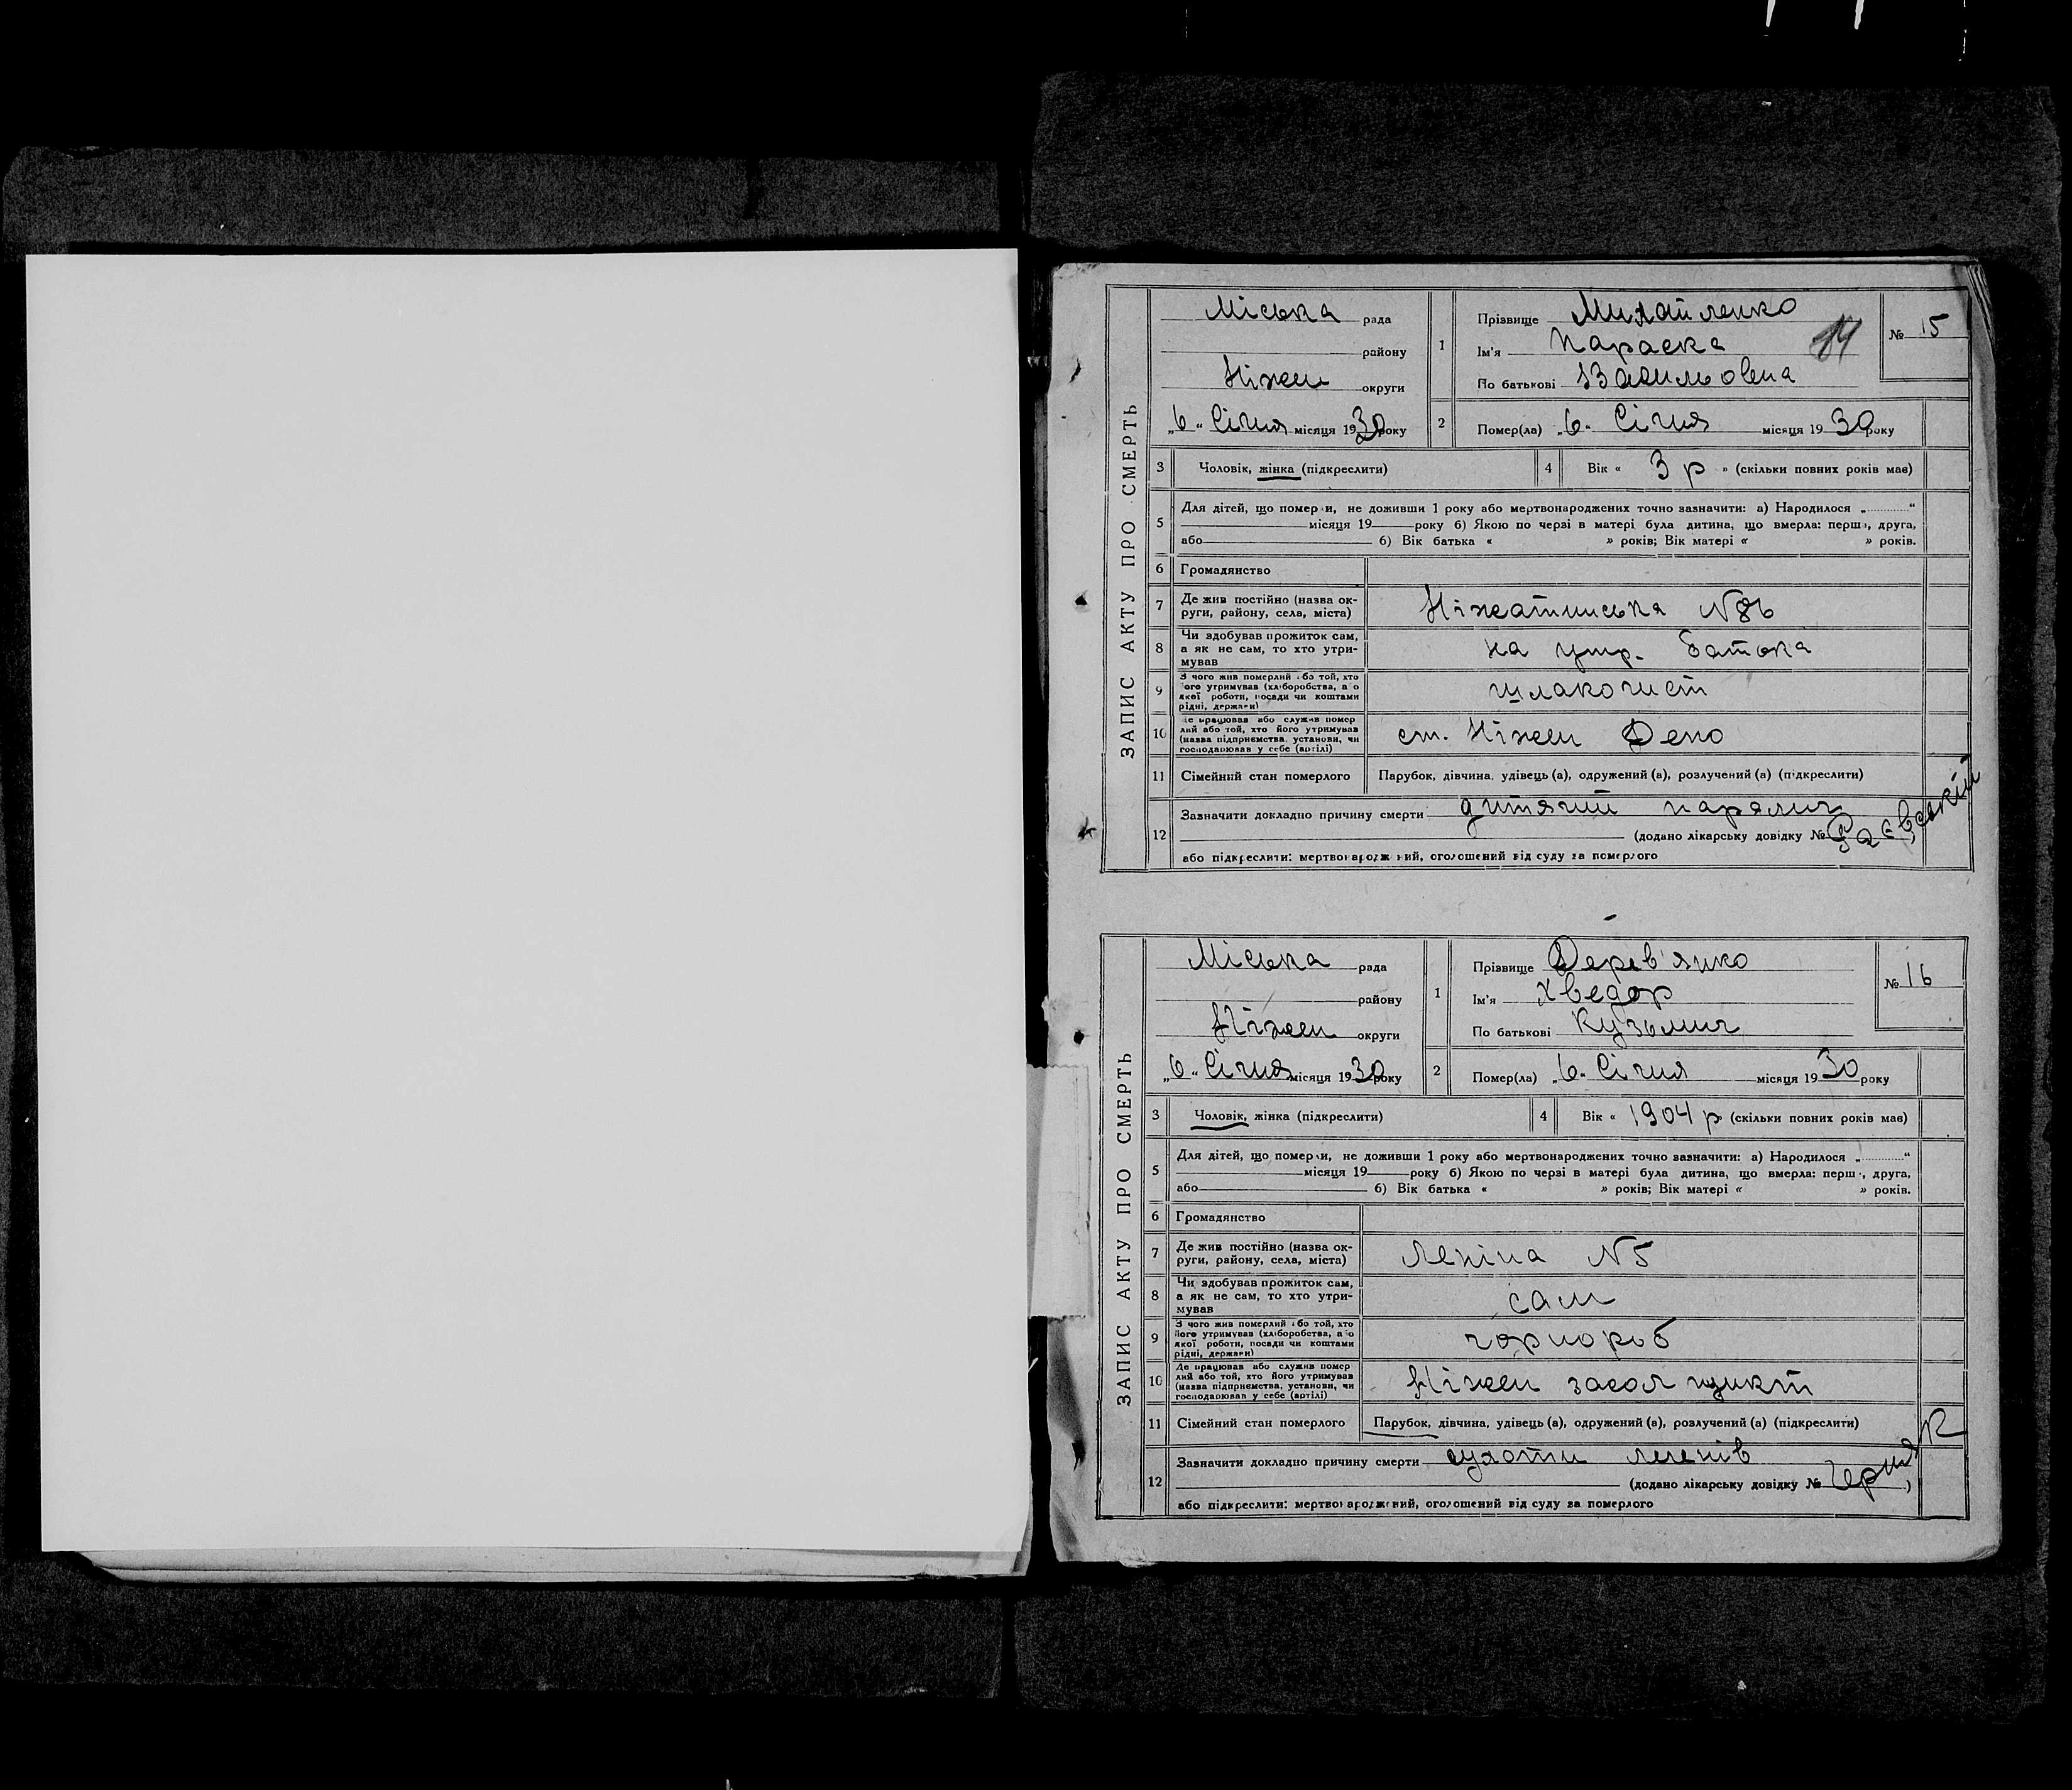 ЗАПИС АКТУ ПРО СМЕРТЬ
Міська рада
району
Ніжен округи
„6“ Січня місяця 1930 року
1
Прізвище Михайленко
Ім'я Параска
14
По батькові Васильовна
№ 15
2
Помер(ла) „6“ Січня місяця 1930 року
3 Чоловік, жінка (підкреслити)
4 Вік « 3 р » (скільки повних років має)
5
Для дітей, що помер и, не доживши 1 року або мертвонароджених точно зазначити: а) Народилося „ “
місяця 19 року б) Якою по черзі в матері була дитина, що вмерла: перш , друга,
або б) Вік батька « » років; Вік матері « » років.
6 Громадянство
7
Де жив постійно (назва ок-
руги, району, села, міста)
Ніжатинська №
8
Чи здобував прожиток сам,
а як не сам, то хто утри-
мував
на утр. батька
9
З чого жив померлий або той, хто
його утримував (хліборобства, а о
якої роботи, посади чи коштами
рідні, держави)
шлакочист
10
Де працював або служив помер
лий або той, хто його утримував
(назва підприємства, установи, чи
господарював у себе (артілі)
ст. Ніжен Депо
11 Сімейний стан померлого
Парубок, дівчина, удівець (а), одружений (а), розлучений (а) (підкреслити)
12
Зазначити докладно причину смерти дитячий параліч
(додано лікарську довідку № Раєвський
або підкреслити: мертвонароджений, оголошений від суду за померлого
ЗАПИС АКТУ ПРО СМЕРТЬ
Міська рада
району
Ніжен округи
„6“ Січня місяця 1930 року
1
Прізвище Дерев'янко
Ім'я Хведор
По батькові Кузьмич
№ 16
2
Помер(ла) „6“ Січня місяця 1930 року
3 Чоловік, жінка (підкреслити)
4 Вік « 1904 р » (скільки повних років має)
5
Для дітей, що помер и, не доживши 1 року або мертвонароджених точно зазначити: а) Народилося „ “
місяця 19 року б) Якою по черзі в матері була дитина, що вмерла: перш , друга,
або б) Вік батька « » років; Вік матері « » років.
6 Громадянство
7
Де жив постійно (назва ок-
руги, району, села, міста)
Леніна № 5
8
Чи здобував прожиток сам,
а як не сам, то хто утри-
мував
сам
9
З чого жив померлий або той, хто
його утримував (хліборобства, а о
якої роботи, посади чи коштами
рідні, держави)
чорнороб
10
Де працював або служив помер
лий або той, хто його утримував
(назва підприємства, установи, чи
господарював у себе (артілі)
Ніжен засол пункт
11 Сімейний стан померлого
Парубок, дівчина, удівець (а), одружений (а), розлучений (а) (підкреслити)
12
Зазначити докладно причину смерти сухоти легенів
(додано лікарську довідку № Черняк )
або підкреслити: мертвонароджений, оголошений від суду за померлого